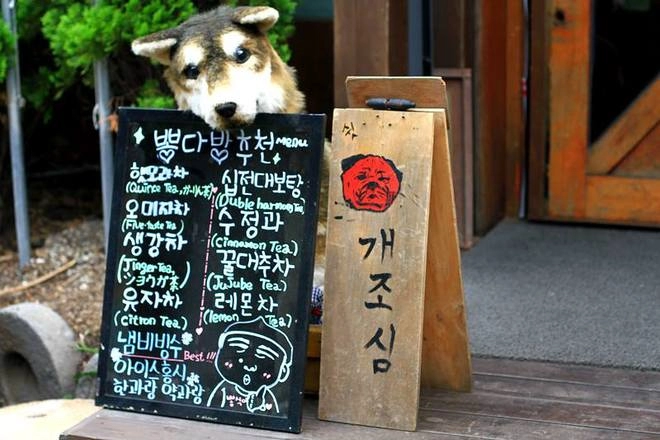 뽀다방추천menu
한모과차
(Quince Tea, カーリん茶)
오미자차
(Five-taste Tea)
생강차
(Jinger Tea,
ショウガ茶)
유자차
(citron Tea)
냄비빙수
Best!!!
아이스홍시
한과랑 약과랑
십전대보탕
(Duble harmony Tea)
수정과
(Cinnamon Tea)
꿀대추차
(JuJube Tea)
레몬차
(lemon Tea)
개조심